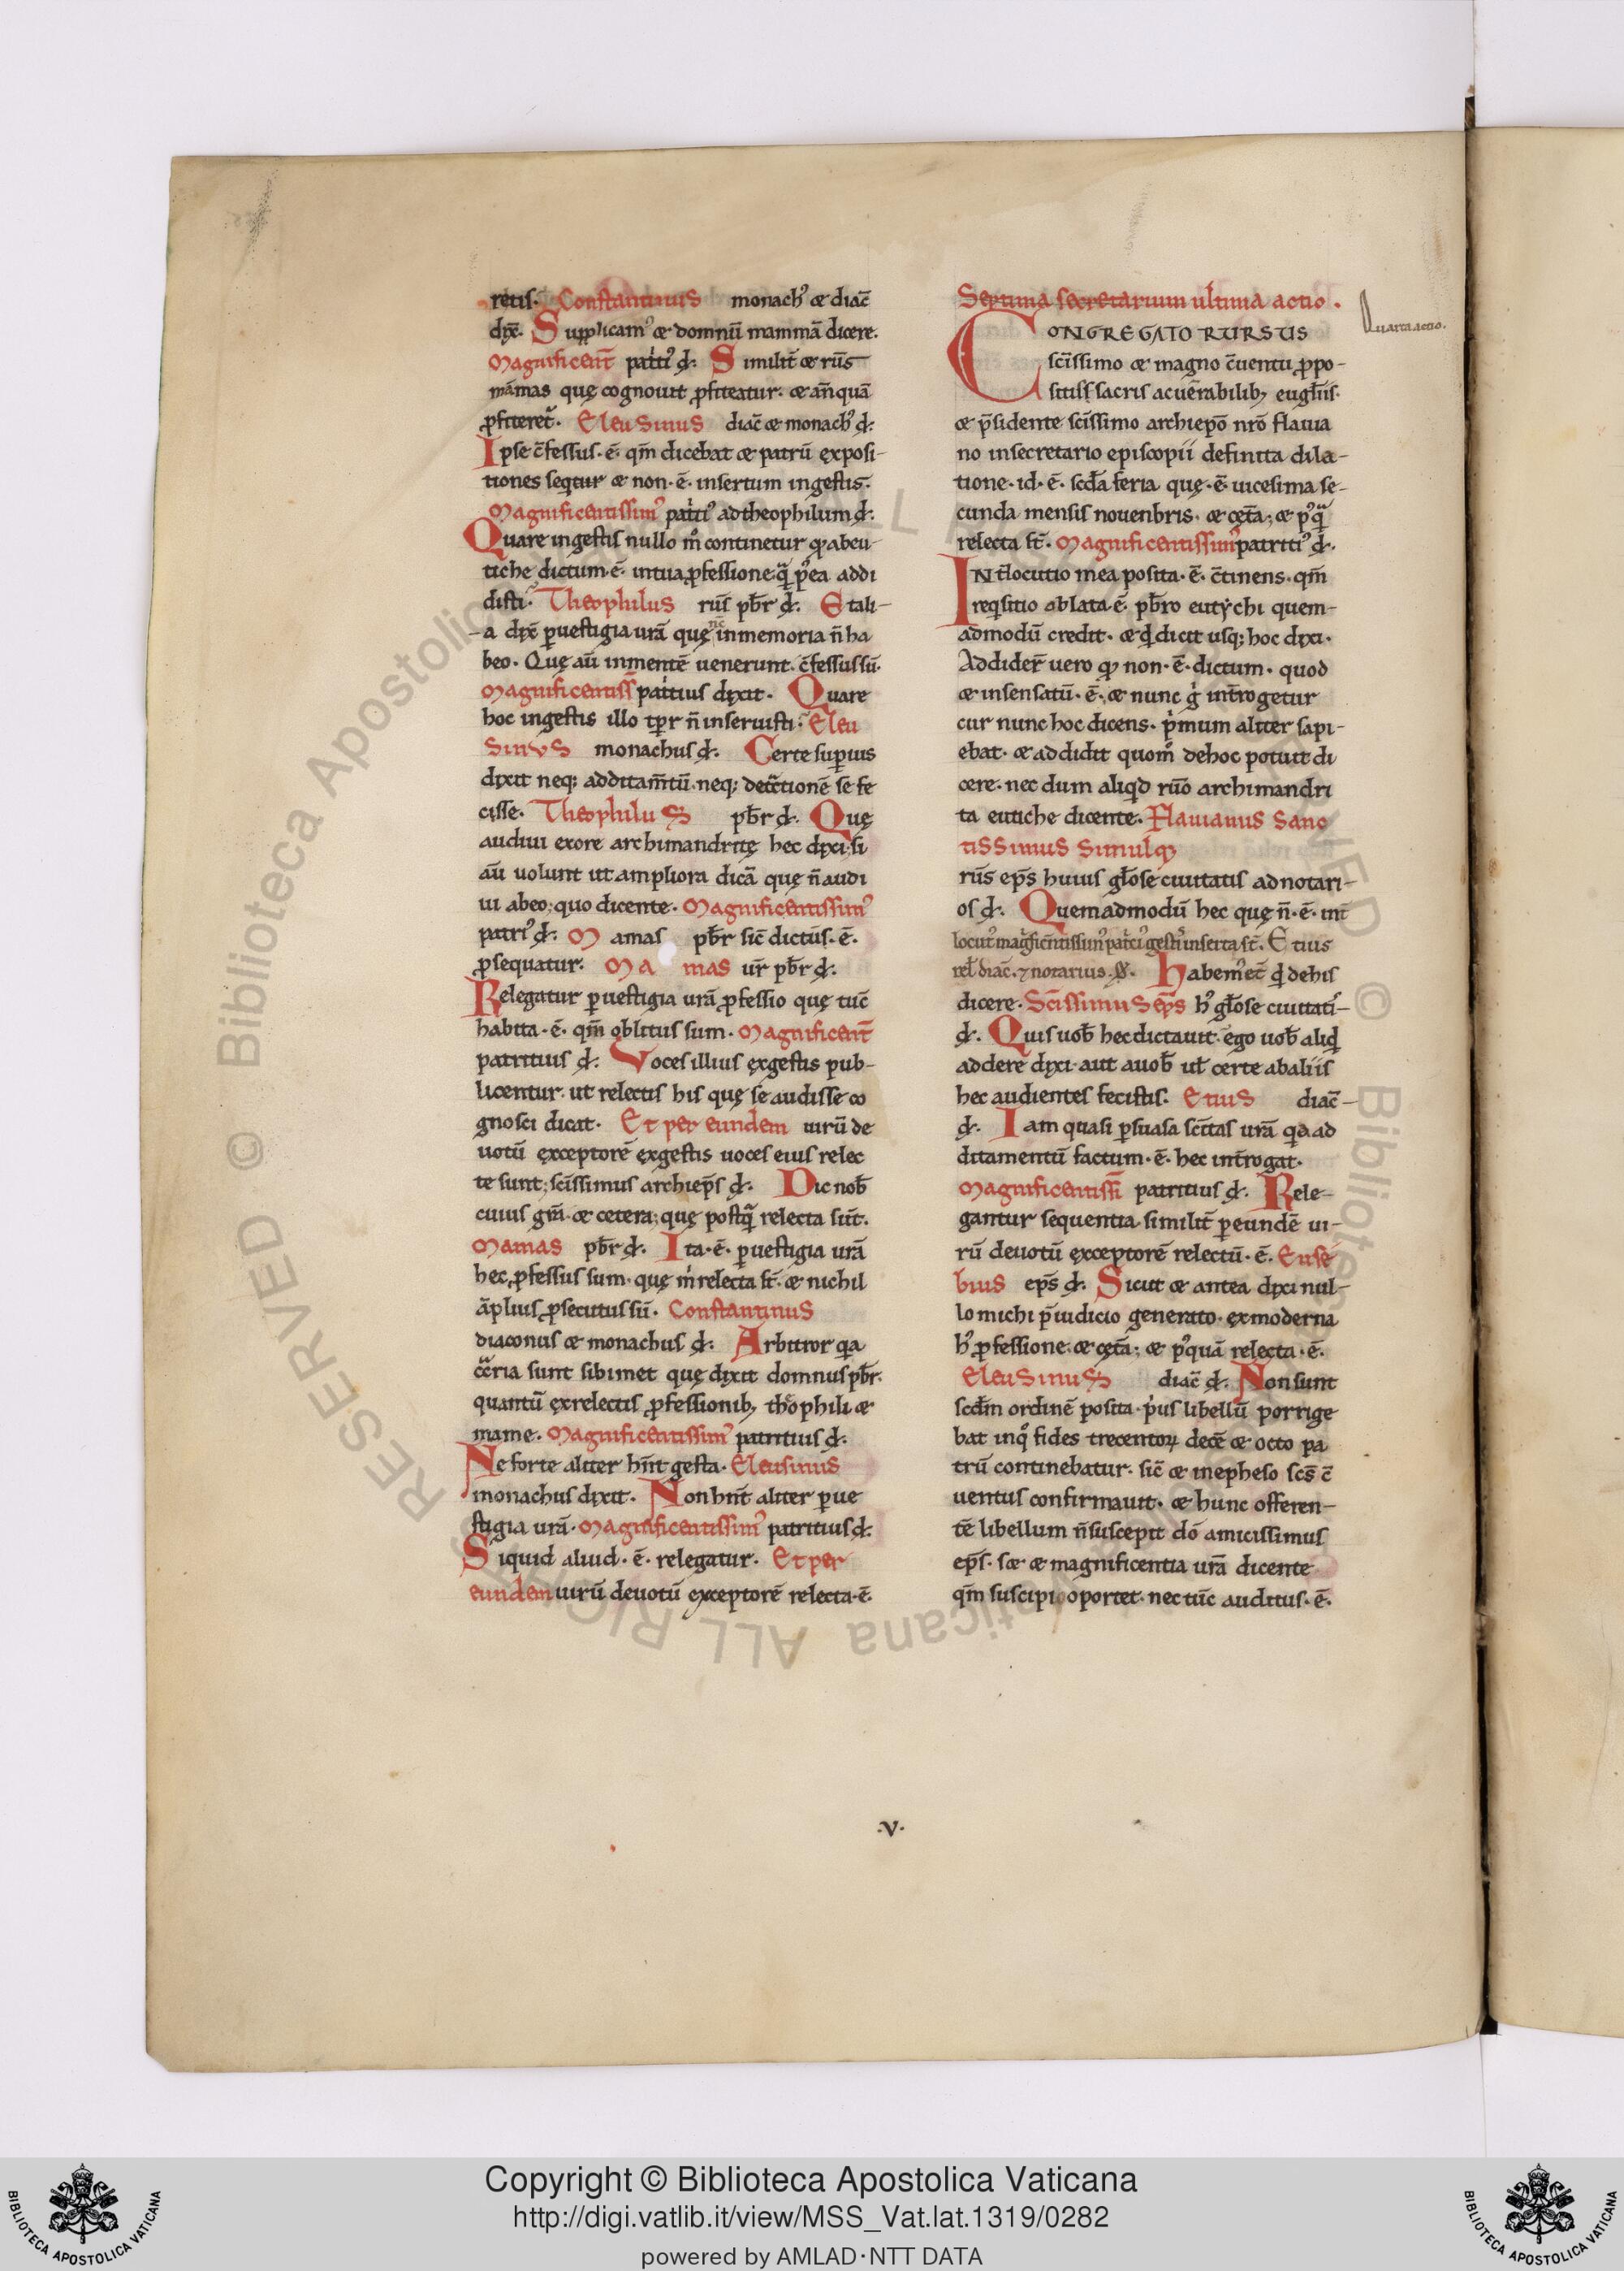 retis. Constantinus monachꝰ & diac̄
dix̄. Supplicamꝰ & domnū mammā dicere.
Magnificent̄ patͥtiꝰ đ. Similit̄ & rūs
māmas quę cognouit ꝓfiteatur. & an̄quā
ꝓfiteret᷑. Eleusinus diac̄ & monachꝰ đ.
Ipse c̄fessus .ē. qm̄ dicebat & patrū exposi-
tiones seqtur & non .ē. insertum ingestis.
Magnificentissimꝰ patͥtiꝰ adtheophilum đ.
Quare ingestis nullo m̊ continetur qđ abeu-
tiche dictum .ē. intua ꝓfessione
disti. Theophilus rūs pb̄r đ. Etali-
a dix̄ ꝑuestigia urā quę nc̄ inmemoria n̄ ha
beo. Quę aū inmentē uenerunt. c̄fessus sū.
Magnificentiss̄ patͥtius dixit. Quare
hoc ingestis illo tꝑr n̄ inseruisti. Eleu
sinus monachus đ. Certe superius
dixit neq; additam̄tū. neq; detc̄tionē se fe
cisse. Theophilus pb̄r đ. Quę
audiui exore archimandritę hec dixi. si
aū uolunt ut ampliora dicā quę n̄ audi
ui abeo; quo dicente. Magnificentissimꝰ
patriꝰ đ. Mamas pb̄r sic̄ dictūs .ē.
ꝓsequatur. Mamas ur̄ pb̄r đ.
Relegatur ꝑuestigia urā ꝓfessio quę tūc
habita .ē. qm̄ oblitus sum. Magnificent̄
patritius đ. Voces illius exgestis pub-
licentur. ut relectis his quę se audisse co
gnosci dicat. Et per eundem uirū de
uotū exceptorē exgestis uoces eius relec
te sunt; sc̄issimus archiep̄s đ. Dic nob̄
cuius gr̄a. & cetera; quę postq̄ relecta sūt.
Mamas pb̄r đ. Ita .ē. ꝑuestigia urā
hec ꝓfessus sum. quę m̍ relecta st̄. & nichil
āplius ꝓsecutus sū. Constantinus
diaconus & monachus đ. Arbitror qa
c̄c̄ria sunt sibimet quę dixit domnus pb̄r.
quantū exrelectis ꝓfessionib; theophili &
mame. Magnificentissimꝰ patritius đ.
Ne forte aliter hn̄t gesta. Eleusinus
monachus dixit. Non hn̄t aliter ꝑue
stigia urā. Magnificentissimꝰ patritius đ.
Siquid aliud .ē. relegatur. Et per
eundem uirū deuotū exceptorē relecta .ē.
Septima secretarium ultima actio.
Quarta actio.
CONGREGATO RURSUS
sc̄issimo & magno c̄uentu ꝓpo-
sitis sacris acuēnrabilib; eugl̄iis.
& p̄sidente sc̄issimo archiepō nrō flauia
no insecretario episcopii definita dila-
tione. id .ē. scđa feria quę .ē. uicesima se-
cunda mensis nouenbris. & cętā; & pꝰq̄
relecta st̄. Magnificentissimꝰ patritiꝰ đ.
Int̄locutio mea posita .ē. c̄tinens. qm̄
reqsitio oblata .ē. pb̄ro eutychi quem-
admodū credit. & qđ dicit usq; hoc dixi.
Addider̄ uero qđ non .ē. dictum. quod
& insensatū .ē. & nunc gͥ int̄rogetur
cur nunc hoc dicens. pͥmum aliter sapi-
ebat. & addidit quom̊ dehoc potuit di
cere. nec dum aliqd ruō archimandri
ta eutiche dicente. Flauianus sanc
tissimus simulq;
rūs ep̄s huius gl̄ose ciuitatis adnotari-
os đ. Quemadmodū hec quę n̄ .ē. int̄
locutꝰ magͥficentissimꝰ patͥciꝰ gestͥ inserta st̄. Etius
rel̄ diac̄. ⁊ notarius. Habemꝰ et̄ qđ dehis
dicere. Sc̄issimus ep̄s hꝰ gl̄ose ciuitatͥ-
đ. Quis uob̄ hec dictauit. ego uob̄ aliqđ
addere dixi. aut auob̄ ul̄ certe abaliis
hec audientes fecistis. Etius diac̄-
đ. Iam quasi ꝑsuasa sc̄itas urā qa ad
ditamentū factum .ē. hec int̄rogat.
Magnificentissī patritius đ. Rele-
gantur sequentia. similit̄ ꝑeundē ui-
rū deuotū exceptorē relectū .ē. Euse
bius ep̄s đ. Sicut & antea dixi nul-
lo michi p̄iudicio generato. exmoderna
hꝰ ꝓfessione. & cętā; & pꝰquā relecta .ē.
Eleusinus diac̄ đ. Non sunt
scđm ordinē posita. pͥus libellū porrige
bat inqͦ fides trecentoꝝ decē & octo pa
trū continebatur. sic̄ & inepheso scs̄ c̄
uentus confirmauit. & hunc offeren-
tē libellum n̄ suscepit dō amicissimus
ep̄s. s& & magnificentia urā dicente
qm̄ suscipi oportet. nec tūc auditus .ē.
.v.
Copyright © Biblioteca Apostolica Vaticana
http://digi.vatlib.it/view/MSS_Vat.lat.1319/0282
powered by AMLAD·NTT DATA
BIBLIOTECA APOSTOLICA VATICANA
BIBLIOTECA APOSTOLICA VATICANA